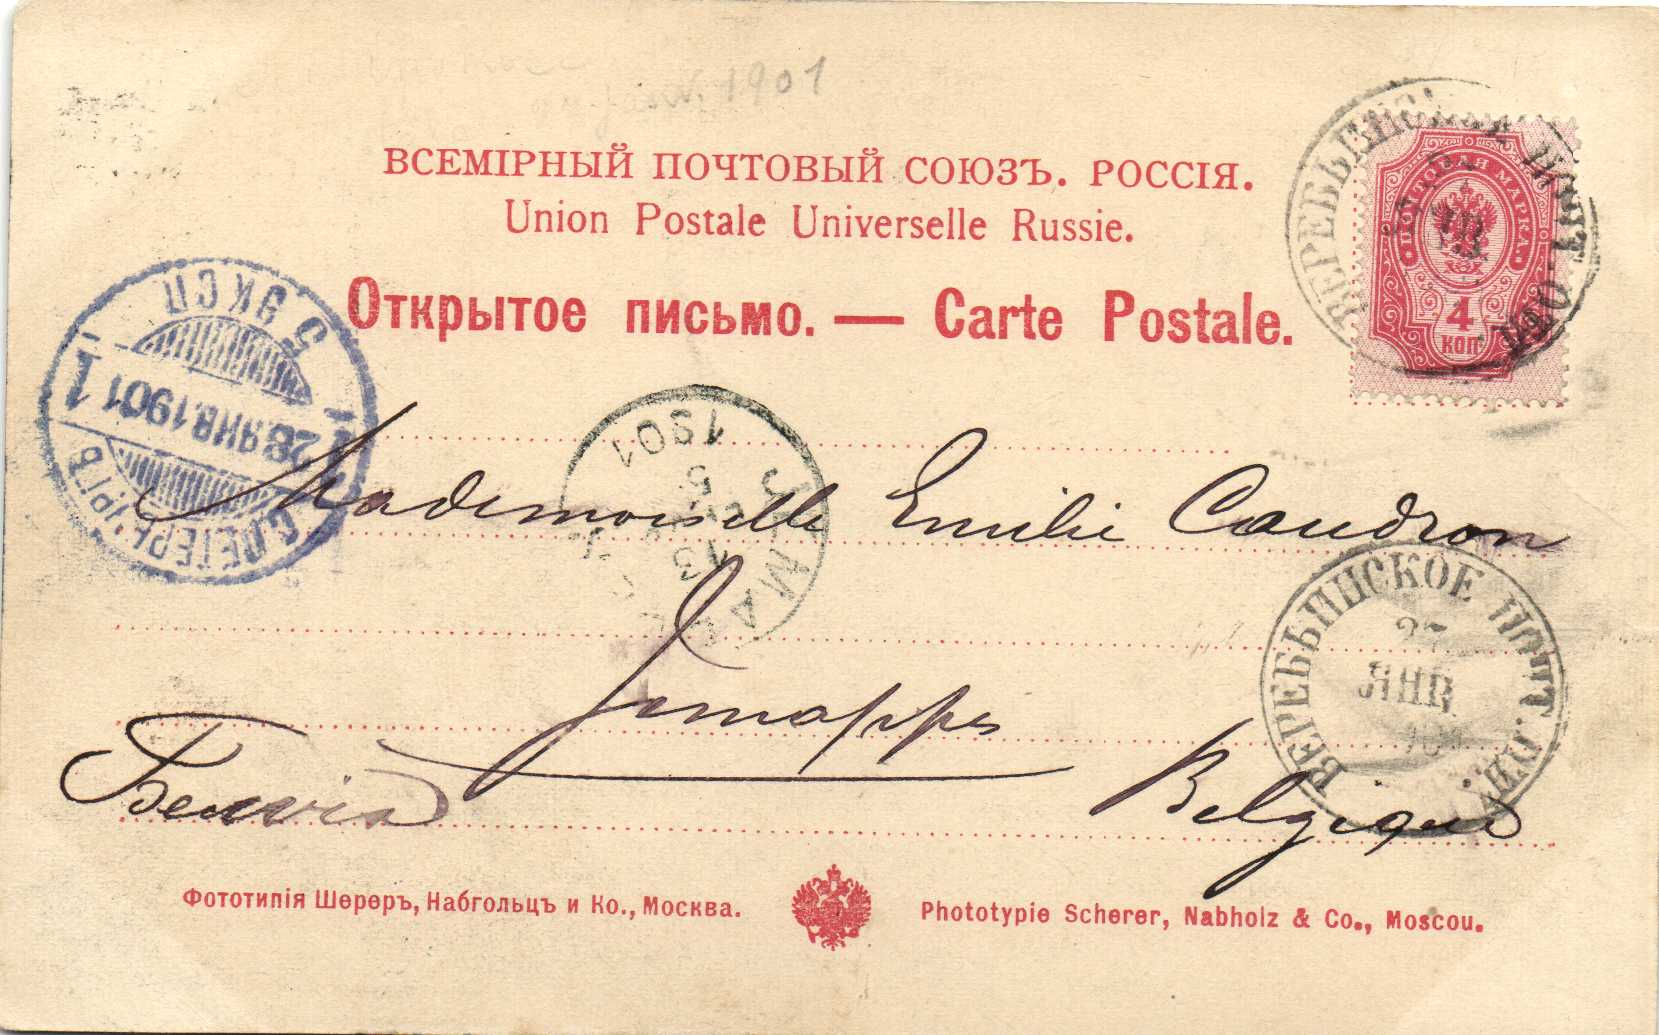 1901
ВСЕМІРНЫЙ ПОЧТОВЫЙ СОЮЗЪ. РОССІЯ.
Union Postale Universelle Russie.
Открытое письмо. — Carte Postale.
ПОЧТОВАЯ МАРКА
4
КОП
5 ЭКСП
1 28 ЯНВ.1901 1
С.ПЕТЕРБУРГЪ
JEMAPPES
13
5
1901
Mademoiselle Emilie Caudron
Jemappes
Belgique
ВЕРЕБЬИНСКОЕ ПОЧТ. ОТД.
27
ЯНВ
Фототипія Шереръ, Набгольцъ и Ко., Москва.
Phototypie Scherer, Nabholz & Co., Moscou.